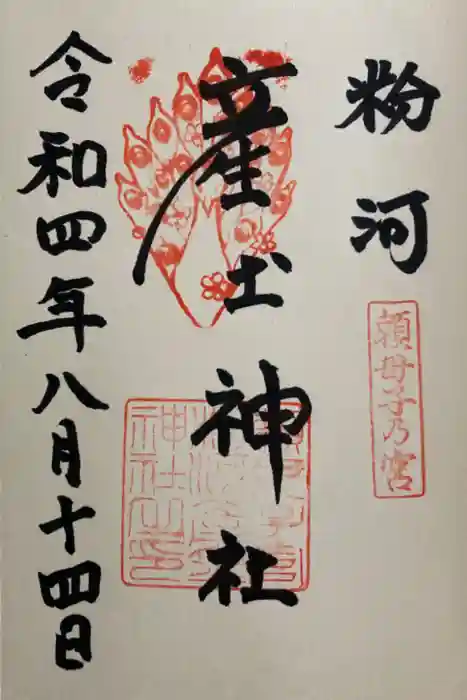 粉河
頼母子乃宮
産土神社
令和四年八月十四日